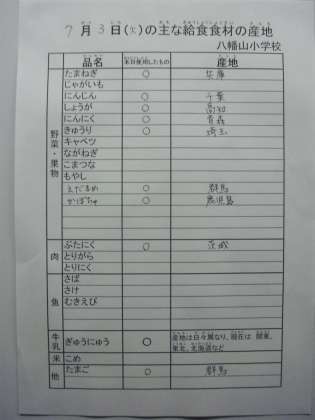 7月3日(火)の主な給食食材の産地
八幡山小学校
品名 本日使用したもの 産地
野菜・果物
たまねぎ ○ 兵庫
じゃがいも
にんじん ○ 千葉
しょうが ○ 高知
にんにく ○ 青森
きゅうり ○ 埼玉
キャベツ
ながねぎ
こまつな
もやし
えだまめ ○ 群馬
かぼちゃ ○ 鹿児島
肉
ぶたにく ○ 茨城
とりがら
とりにく
魚
さば
さけ
むきえび
牛乳 ぎゅうにゅう ○ 産地は日々異なり、現在は 関東、
東北、北海道など
米 こめ
他 たまご ○ 群馬